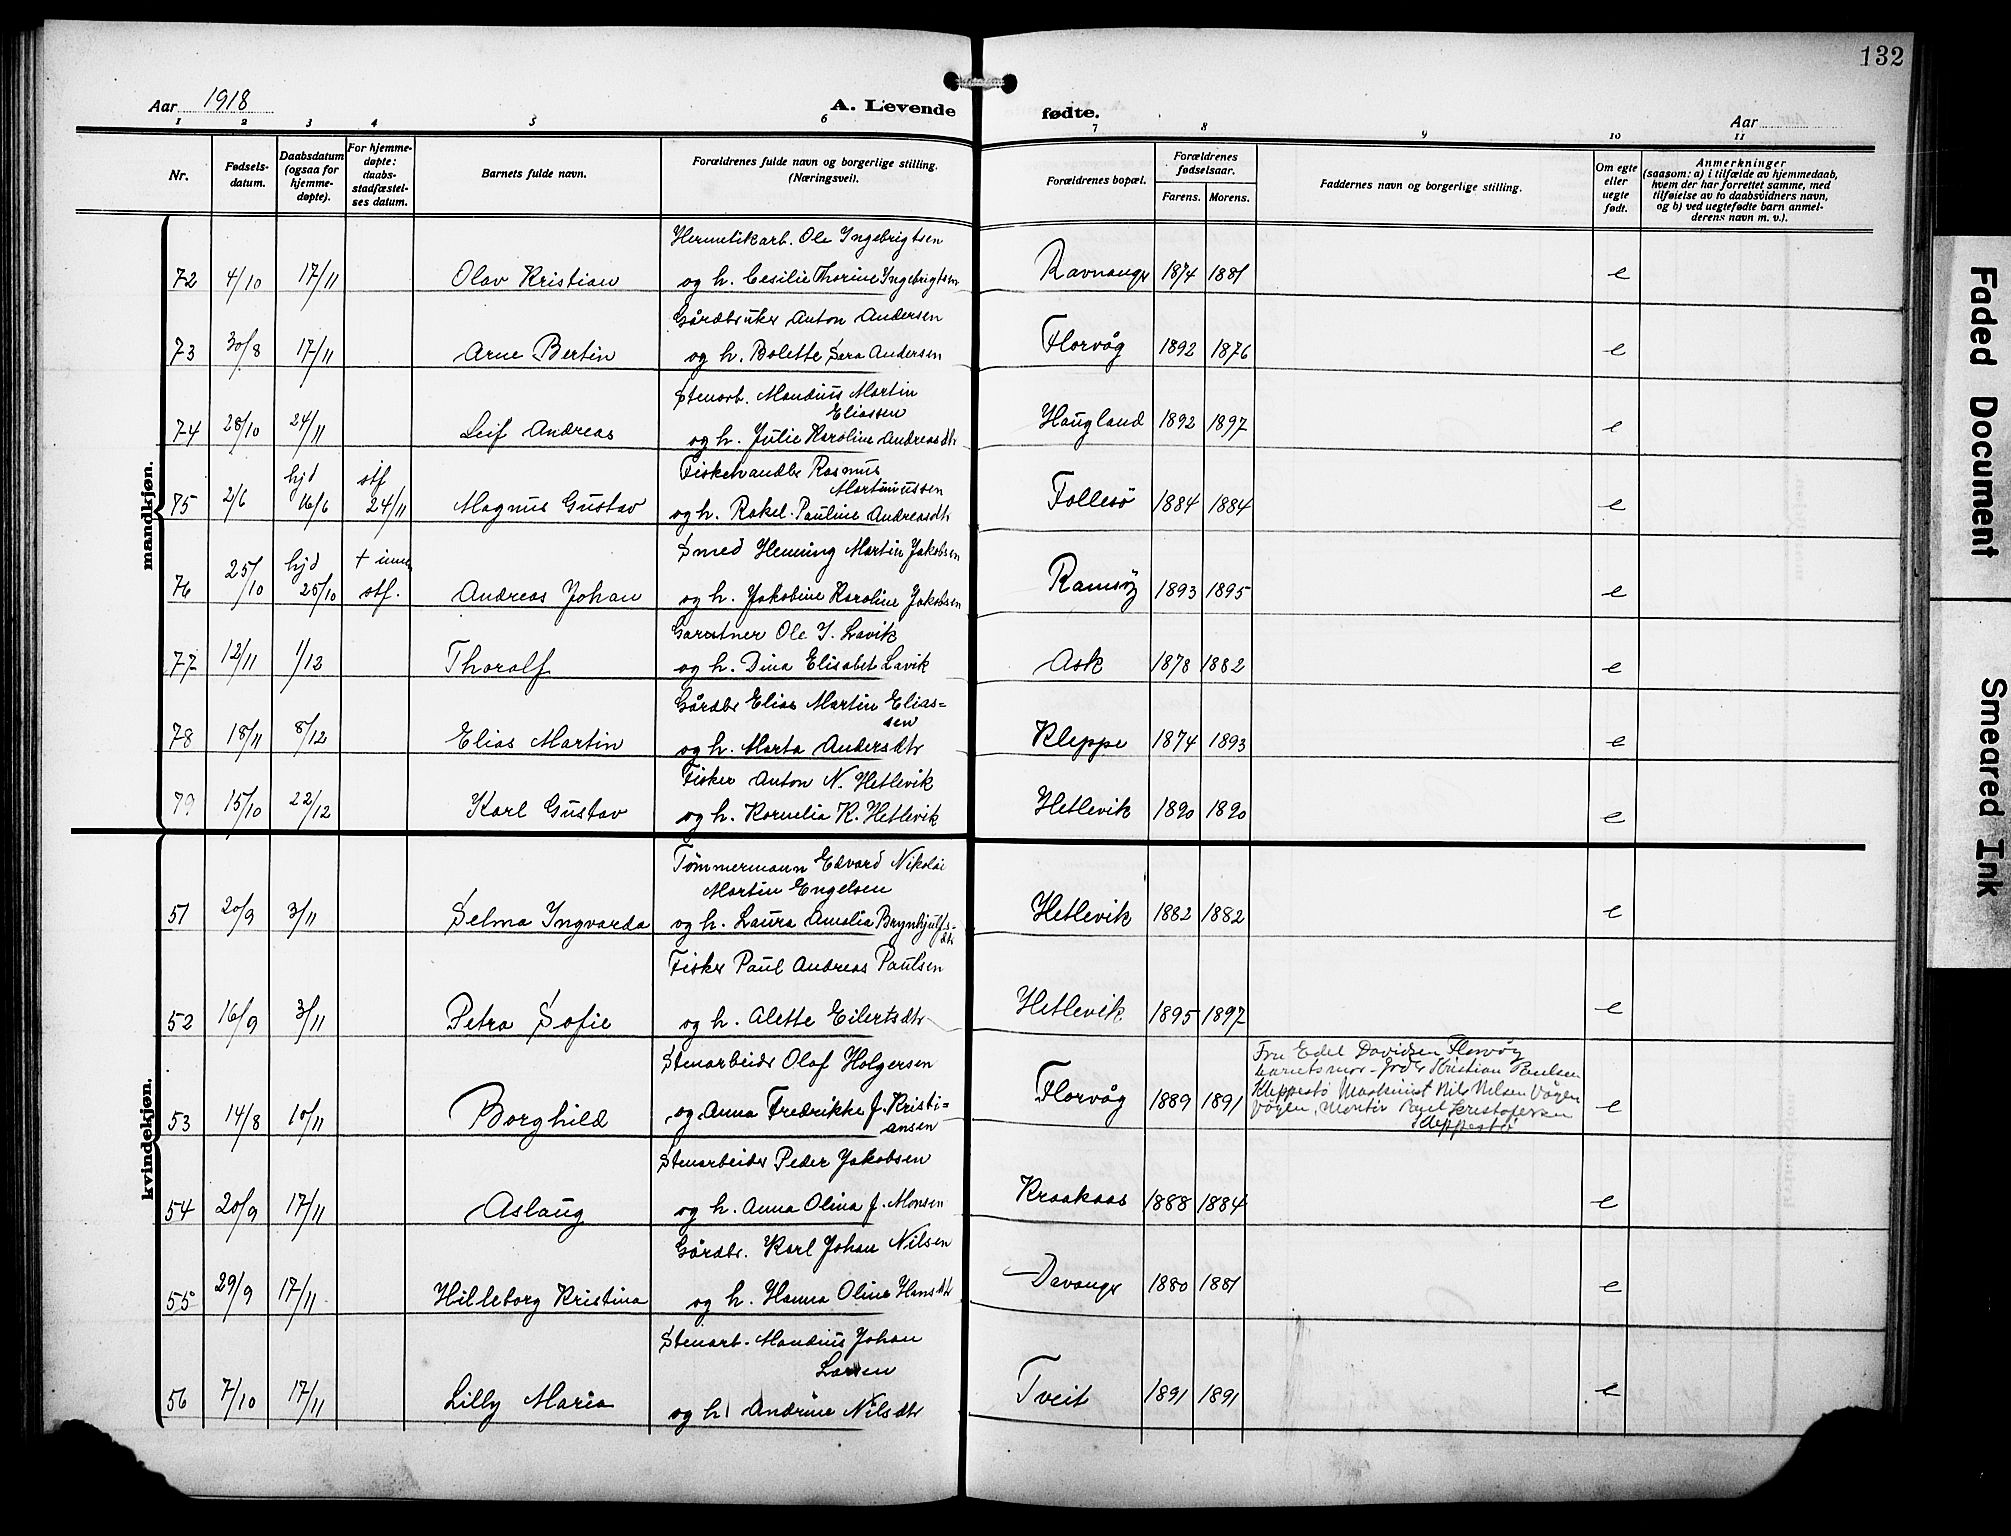 132
Aar 1918
A. Levende fødte.
Aar
1 2 3 4 5 6 7 8 9 10 11
Nr.
Fødsels-
datum.
Daabsdatum
(ogsaa for
hjemme-
døpte).
For hjemme-
døpte:
daabs-
stadfæstel-
ses datum.
Barnets fulde navn.
Forældrenes fulde navn og borgerlige stilling.
(Næringsvei).
Forældrenes bopæl.
Forældrenes
fødselsaar.
Farens. Morens.
Faddernes navn og borgerlige stilling.
Om egte
eller
uegte
født.
Anmerkninger
(saasom: a) i tilfælde av hjemmedaab,
hvem der har forrettet samme, med
tilføielse av to daabsvidners navn,
og b) ved uegtefødte barn anmel-
derens navn m. v.).
mandkjøn.
Hermetikarb. Ole Ingebrigtsen
72 4/10 17/11 Olav Kristian og h. Cesilie Thorine Ingebrigtsen Ravnanger 1874 1881 e
Gårdbruker Anton Andersen
73 30/8 17/11 Arne Bertin og h. Bolette Sera Andersen Florvåg 1892 1876 e
Stenarb. Mandius Martin
Eliassen
74 28/10 24/11 Leif Andreas og h. Julie Karoline Andreasdtr Haugland 1892 1897 e
hjd stf Fiskehandler Rasmus
Martinussen
75 2/6 16/6 24/11 Magnus Gustav og h. Rakel Pauline Andreasdtr Follesö 1884 1884 e
hjd + innen Smed Henning Martin Jakobsen
76 25/10 25/10 stf. Andreas Johan og h. Jakobine Karoline Jakobsen Ramsöy 1893 1895 e
Gartner Ole J. Lavik
77 12/11 1/12 Thoralf og h. Dina Elisabet Lavik Ask 1878 1882 e
Gårdbr Elias Martin Elias=
sen
78 18/11 8/12 Elias Martin og h. Marta Andersdtr Kleppe 1874 1893 e
Fisker Anton N. Hetlevik
79 15/10 22/12 Karl Gustav og h. Kornelia K. Hetlevik Hetlevik 1890 1890 e
kvindekjøn.
Tömmermann Edvard Nikolai
Martin Engelsen
51 20/9 3/11 Selma Ingvarda og h. Laura Amalia Brynhjulfs-
dtr Hetlevik 1882 1882 e
Fisker Paul Andreas Paulsen
52 16/9 3/11 Petra Sofie og h. Alette Eilertsdtr Hetlevik 1895 1897 e
Stenarbeider Olaf Holgersen
53 14/8 10/11 Borghild og Anna Fredrikke f. Kristi=
ansen Florvåg 1889 1891 e
Fru Edel Davidsen Florvåg
barnetsmor - Kristian Paulsen
Kleppestö Maskinist Nils Nilsen Vågen
Vågen, Montör Paul Kristofersen
Kleppestö
Stenarbeider Peder Jakobsen
54 20/9 17/11 Aslaug og h. Anna Olina f. Monsen Kraakaas 1888 1884 e
Gårdbr. Karl Johan Nilsen
55 29/9 17/11 Hilleborg Kristina og h. Hanna Oline Hansdtr Davanger 1880 1881 e
Stenarb. Mandius Johan
Larsen
56 7/10 17/11 Lilly Maria og h. Andrine Nilsdtr Tveit 1891 1891 e
Faded Document
Smeared Ink